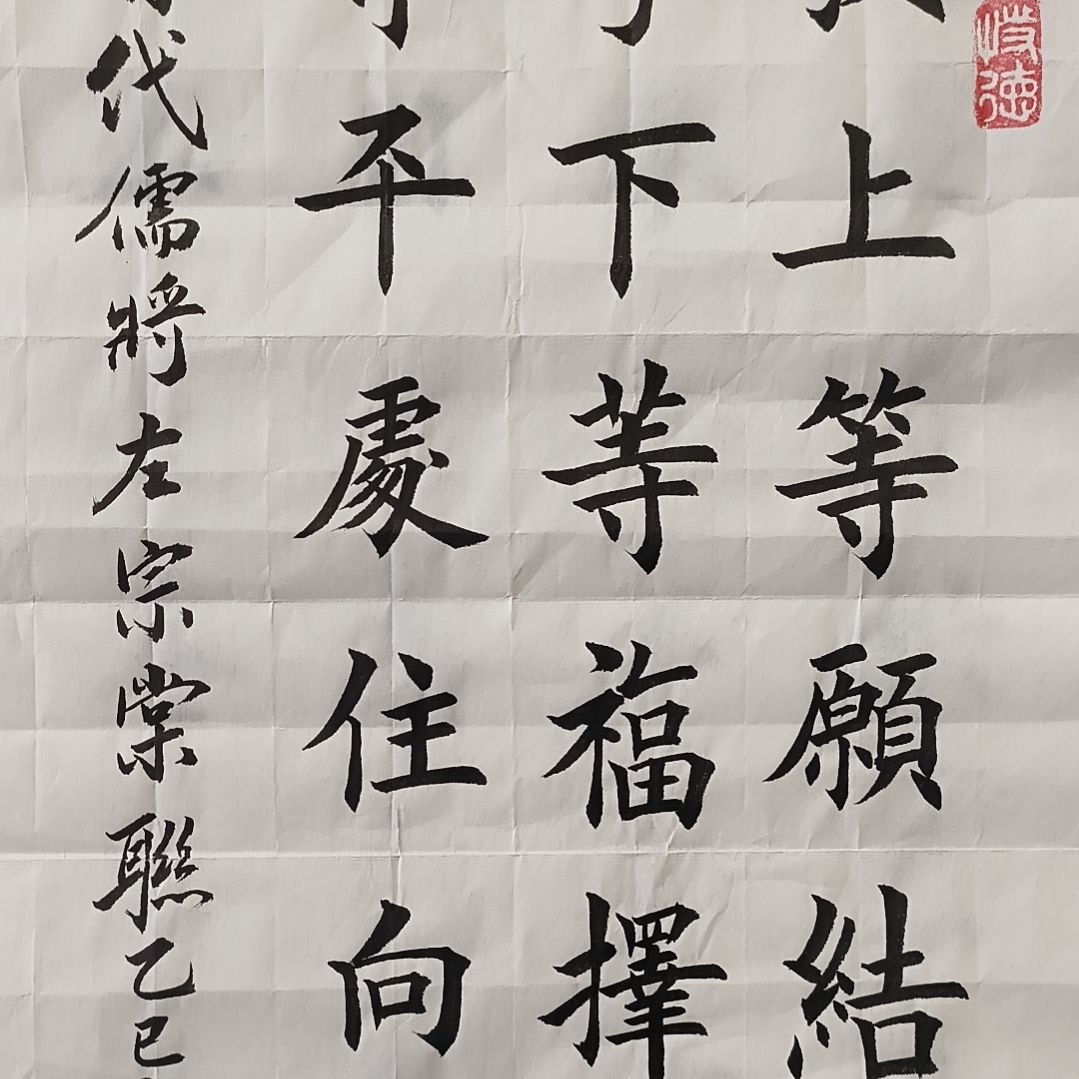 德
上等願結
下等福擇
平處住向
代儒將左宗棠聯乙巳